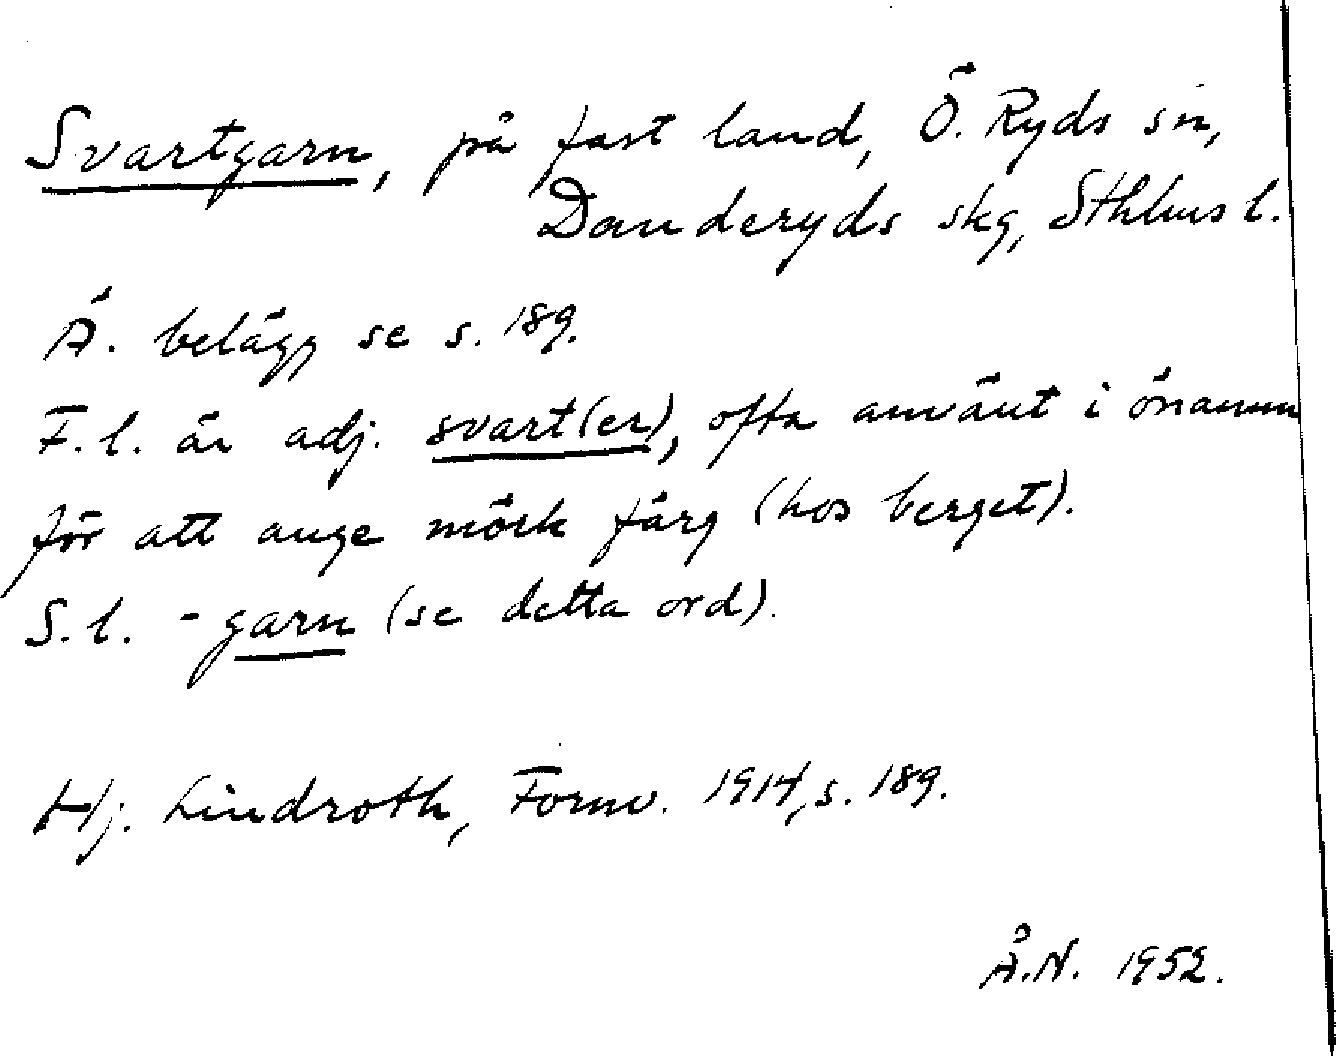 Svartgarn, på fast land, Ö. Ryds sn,
Danderyds skg, Sthlms l.
Ä. belägg se s. 189.
F.l. är adj. svart(er), ofta använt i önamn
för att ange mörk färg (hos berget).
S.l. -garn (se detta ord).
Hj. Lindroth, Fornv. 1914, s. 189.
Å.N. 1952.